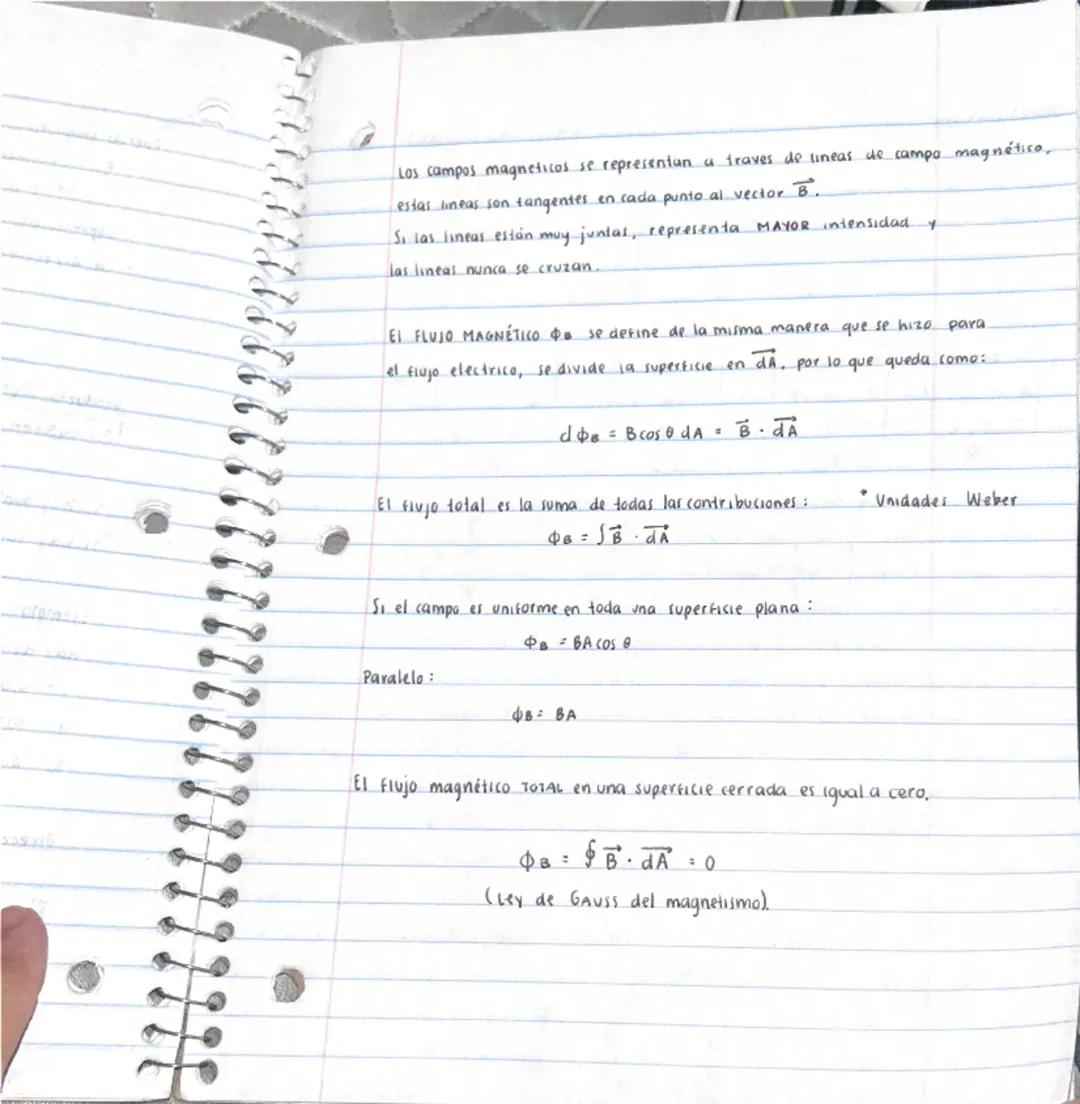 Los campos magneticos se representan a traves de lineas de campo magnético,
estas lineas son tangentes en cada punto al vector B⃗.
Si las lineas están muy juntas, representa MAYOR intensidad y
las lineas nunca se cruzan.
El FLUJO MAGNÉTICO Φ_B se define de la misma manera que se hizo para
el flujo electrico, se divide la superficie en dA⃗, por lo que queda como:
dΦ_B = B cos θ dA = B⃗ · dA⃗
El flujo total es la suma de todas las contribuciones : * Unidades Weber
Φ_B = ∫ B⃗ · dA⃗
Si el campo es uniforme en toda una superficie plana :
Φ_B = BA cos θ
Paralelo :
Φ_B = BA
El flujo magnético TOTAL en una superficie cerrada es igual a cero.
Φ_B = ∮ B⃗ · dA⃗ = 0
(Ley de GAUSS del magnetismo).